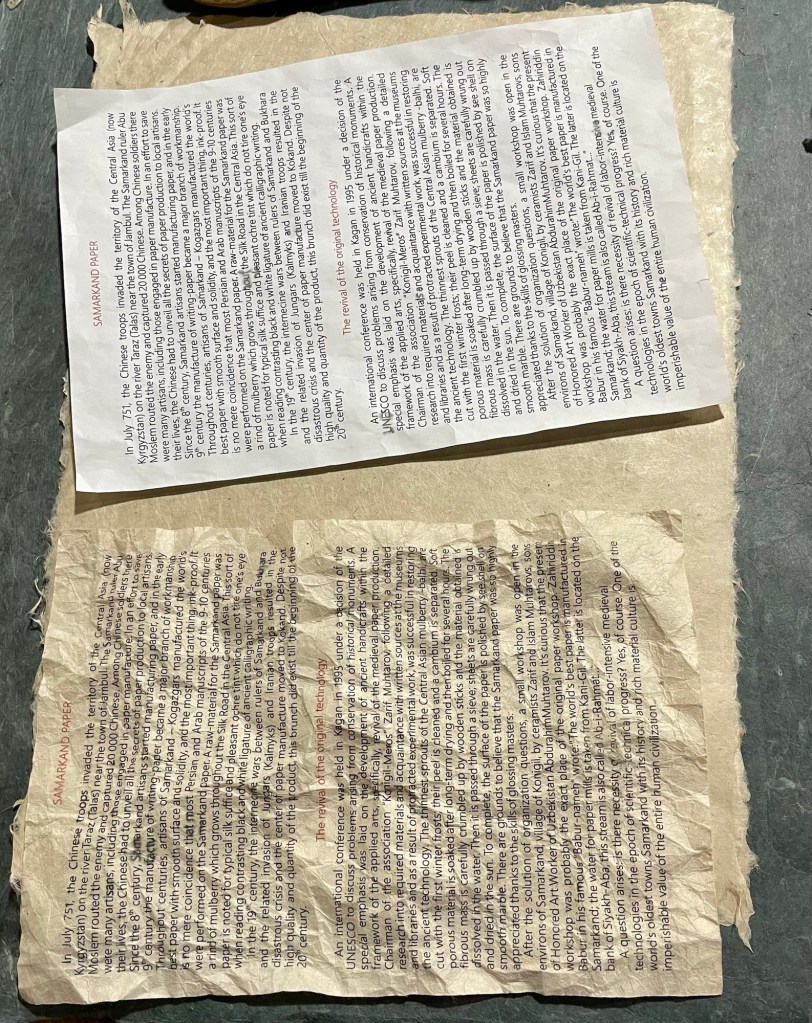 SAMARKAND PAPER
In July 751, the Chinese troops invaded the territory of the Central Asia (now
Kyrgyzstan) on the river Taraz (Talas) near the town of Jambul. The Samarkand ruler Abu
Moslem routed the enemy and captured 20 000 Chinese. Among Chinese soldiers there
were many artisans, including those engaged in paper manufacture. In an effort to save
their lives, the Chinese had to unveil all the secrets of paper production to local artisans.
Since the 8th century, Samarkand artisans started manufacturing paper, and in the early
9th century the manufacture of writing-paper became a major branch of workmanship.
Throughout centuries, artisans of Samarkand – Kogazgars manufactured the world's
best paper with smooth surface and solidity, and the most important thing, ink-proof. It
is no mere coincidence that most Persian and Arab manuscripts of the 9-10 centuries
were performed on the Samarkand paper. A raw-material for the Samarkand paper was
a rind of mulberry which grows throughout the Silk Road in the Central Asia. This sort of
paper is noted for typical silk suffice and pleasant ochre tint which do not tire one's eye
when reading contrasting black and white ligature of ancient calligraphic writing.
In the 19th century, the internecine wars between rulers of Samarkand and Bukhara
and the related invasion of Jungars (Kalmyks) and Iranian troops resulted in the
disastrous crisis and the center of paper manufacture moved to Kokand. Despite not
high quality and quantity of the product, this brunch did exist till the beginning of the
20th century.
The revival of the original technology
An International conference was held in Kagan in 1995 under a decision of the
UNESCO to discuss problems arising from conservation of historical monuments. A
special emphasis was laid on the development of ancient handicrafts within the
framework of the applied arts, specifically, revival of the medieval paper production.
Chairman of the association "Konigil-Meros" Zarif Muhtarov, following a detailed
research into required materials and acquaintance with written sources at the museums
and libraries and as a result of protracted experimental work, was successful in restoring
the ancient technology. The thinnest sprouts of the Central Asian mulberry - balhi, are
cut with the first winter frosts; their peel is cleaned and a cambium is separated. Soft
porous material is soaked after long-term drying and then boiled for several hours. The
fibrous mass is carefully crumbled up by wooden sticks and the material obtained is
dissolved in the water. Then it is passed through a sieve; sheets are carefully wring out
and dried in the sun. To complete, the surface of the paper is polished by see shell on
smooth marble. There are grounds to believe that the Samarkand paper was so highly
appreciated thanks to the skills of glossing masters.
After the solution of organization questions, a small workshop was open in the
environs of Samarkand, village of Konigil, by ceramists Zarif and Islam Muhtarovs, sons
of Honored Art Worker of Uzbekistan AbdurahimMuhtarov. It's curious that the present
workshop was probably the exact place of the original paper workshop. Zahiriddin
Babur in his famous "Babur-nameh" wrote: "The world's best paper is manufactured in
Samarkand; the water for paper mills is taken from Kani-Gil. The latter is located on the
bank of Siyakh-Aba, this stream is also called Ab-i-Rahmat..."
A question arises: is there necessity of revival of labor-intensive medieval
technologies in the epoch of scientific-technical progress? Yes, of course. One of the
world's oldest towns, Samarkand with its history and rich material culture is
imperishable value of the entire human civilization.
SAMARKAND PAPER
In July 751, the Chinese troops invaded the territory of the Central Asia (now
Kyrgyzstan) on the river Taraz (Talas) near the town of Jambul. The Samarkand ruler Abu
Moslem routed the enemy and captured 20 000 Chinese. Among Chinese soldiers there
were many artisans, including those engaged in paper manufacture. In an effort to save
their lives, the Chinese had to unveil all the secrets of paper production to local artisans.
Since the 8th century, Samarkand artisans started manufacturing paper, and in the early
9th century the manufacture of writing-paper became a major branch of workmanship.
Throughout centuries, artisans of Samarkand – Kogazgars manufactured the world's
best paper with smooth surface and solidity, and the most important thing, ink-proof. It
is no mere coincidence that most Persian and Arab manuscripts of the 9-10 centuries
were performed on the Samarkand paper. A raw-material for the Samarkand paper was
a rind of mulberry which grows throughout the Silk Road in the Central Asia. This sort of
paper is noted for typical silk suffice and pleasant ochre tint which do not tire one's eye
when reading contrasting black and white ligature of ancient calligraphic writing.
In the 19th century, the internecine wars between rulers of Samarkand and Bukhara
and the related invasion of Jungars (Kalmyks) and Iranian troops resulted in the
disastrous crisis and the center of paper manufacture moved to Kokand. Despite not
high quality and quantity of the product, this brunch did exist till the beginning of the
20th century.
The revival of the original technology
An International conference was held in Kagan in 1995 under a decision of the
UNESCO to discuss problems arising from conservation of historical monuments. A
special emphasis was laid on the development of ancient handicrafts within the
framework of the applied arts, specifically, revival of the medieval paper production.
Chairman of the association "Konigil-Meros" Zarif Muhtarov, following a detailed
research into required materials and acquaintance with written sources at the museums
and libraries and as a result of protracted experimental work, was successful in restoring
the ancient technology. The thinnest sprouts of the Central Asian mulberry - balhi, are
cut with the first winter frosts; their peel is cleaned and a cambium is separated. Soft
porous material is soaked after long-term drying and then boiled for several hours. The
fibrous mass is carefully crumbled up by wooden sticks and the material obtained is
dissolved in the water. Then it is passed through a sieve; sheets are carefully wring out
and dried in the sun. To complete, the surface of the paper is polished by see shell on
smooth marble. There are grounds to believe that the Samarkand paper was so highly
appreciated thanks to the skills of glossing masters.
After the solution of organization questions, a small workshop was open in the
environs of Samarkand, village of Konigil, by ceramists Zarif and Islam Muhtarovs, sons
of Honored Art Worker of Uzbekistan AbdurahimMuhtarov. It's curious that the present
workshop was probably the exact place of the original paper workshop. Zahiriddin
Babur in his famous "Babur-nameh" wrote: "The world's best paper is manufactured in
Samarkand; the water for paper mills is taken from Kani-Gil. The latter is located on the
bank of Siyakh-Aba, this stream is also called Ab-i-Rahmat..."
A question arises: is there necessity of revival of labor-intensive medieval
technologies in the epoch of scientific-technical progress? Yes, of course. One of the
world's oldest towns, Samarkand with its history and rich material culture is
imperishable value of the entire human civilization.